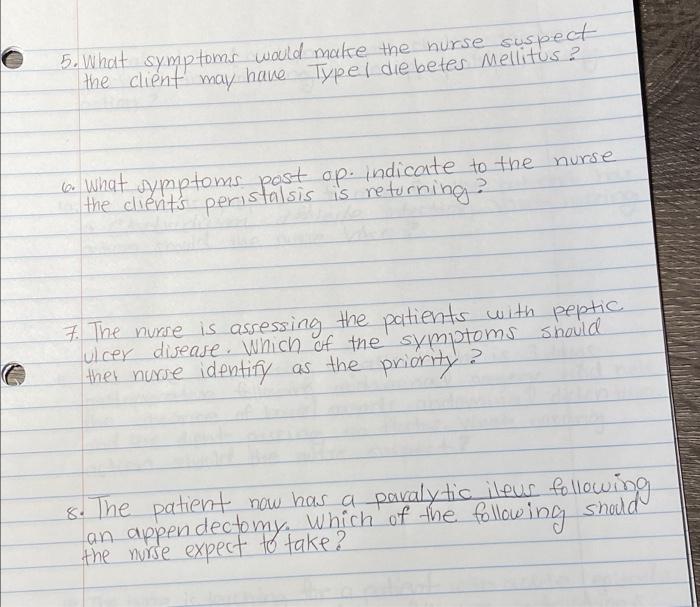 5. What symptoms would make the nurse suspect
the client may have Type 1 diebetes Mellitus?
6. What symptoms post op. indicate to the nurse
the client's peristalsis is returning?
7. The nurse is assessing the patients with peptic
ulcer disease. Which of the symptoms should
ther nurse identify as the priority?
8. The patient now has a paralytic ileus following
an appendectomy. Which of the following should
the nurse expect to take?